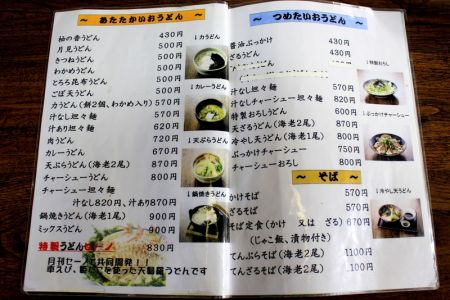 ～ あたたかいおうどん ～
梅の香うどん 430円
月見うどん 430円
きつねうどん
わかめうどん
とろろ昆布うどん
ごぼ天うどん
力うどん(餅2個、わかめ入り) 570円
汁なし坦々麺 570円
汁あり坦々麺 620円
肉うどん 670円
カレーうどん 670円
天ぷらうどん(海老2尾) 870円
チャーシューうどん 770円
チャーシュー坦々麺
汁なし820円、汁あり870円
鍋焼きうどん(海老1尾) 900円
ミックスうどん 900円
特製うどんセーノ 830円
月刊セーノと共同開発!!
↓力うどん
↓カレーうどん
↓天ぷらうどん
↓鍋焼きうどん
～ つめたいおうどん ～
醤油ぶっかけ 430円
ざるうどん
汁なし坦々麺 570円
汁なしチャーシュー坦々麺 820円
特製おろしうどん 600円
天ざるうどん(海老2尾)
冷やし天うどん(海老1尾)
ぶっかけチャーシュー 750円
チャーシューおろし 800円
↓特製おろし
↓ぶっかけチャーシュー
↓冷やし天うどん
～ そば ～
かけそば 570円
ざるそば 570円
そば定食(かけ 又は ざる) 670円
(じゃこ飯、漬物付き)
てんぷらそば(海老2尾) 1100円
てんざるそば(海老2尾) 1100円